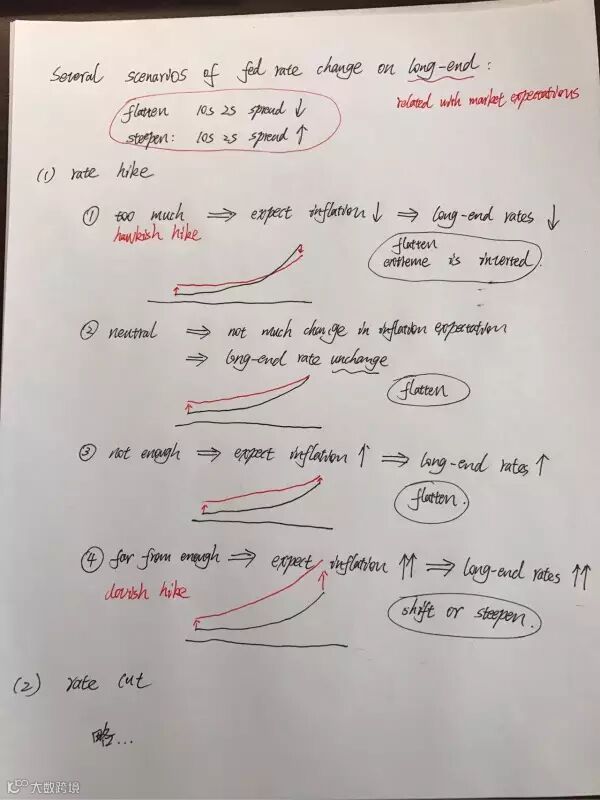 Several scenarios of fed rate change on long-end :
related with market expectations
flatten 10s 2s spread ↓
steepen: 10s 2s spread ↑
(1) rate hike
① too much ⇒ expect inflation ↓ ⇒ long-end rates ↓
hawkish hike
flatten
extreme is inverted.
② neutral ⇒ not much change in inflation expectation
⇒ long-end rate unchange
flatten
③ not enough ⇒ expect inflation ↑ ⇒ long-end rates ↑
flatten.
④ far from enough ⇒ expect inflation ↑↑ ⇒ long-end rates ↑↑
dovish hike
shift or steepen.
(2) rate cut
略...
大数跨境